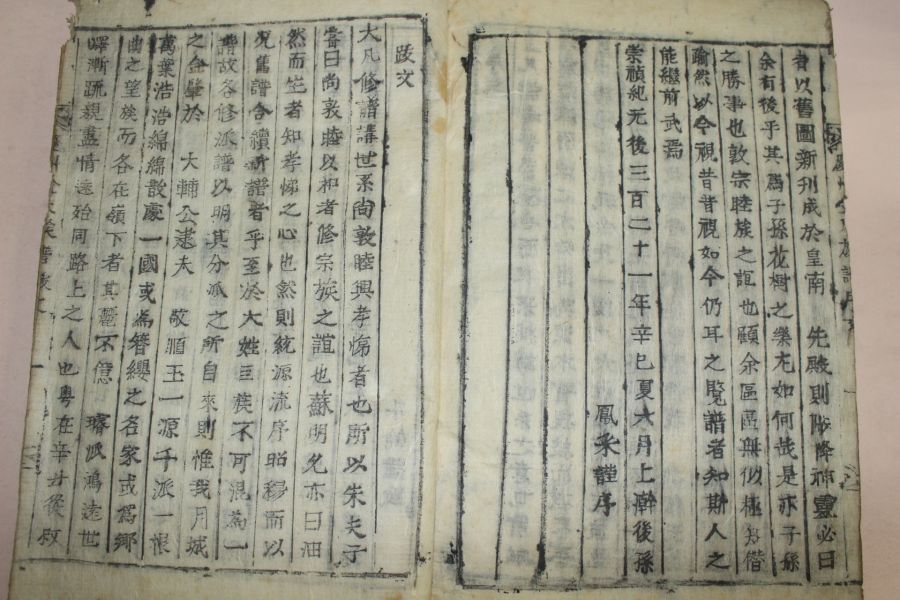 者以舊圖新刊成於皇南 先殿則陟降神靈必曰
余有後乎其爲子孫花樹之樂尤如何哉是亦子孫
之勝事也敦宗睦族之誼也顧余區區無似極知僭
踰然以今視昔昔視如今仍耳之覽譜者知斯人之
能繼前武焉
崇禎紀元後三百二十一年辛巳夏六月上澣後孫
鳳采謹序
跋文
大凡修譜講世系尙敦睦興孝悌者也所以朱夫子
嘗曰尙敦睦以和者修宗族之誼也蘇明允亦曰油
然而生者知孝悌之心也然則統源流序昭穆而以
況舊譜合續新譜者乎至於大姓巨族不可混為一
譜故各修派譜以明其分派之所自來則惟我月城
之金肇於 大輔公逮夫 敬順王一源千派一根
萬葉浩浩綿綿散處一國或為簪纓之名家或爲鄉
曲之望族而各在嶺下者其麗不億 派鴻遠世
漸疏親盡情遠始同路上之人也粤在辛丑後叙